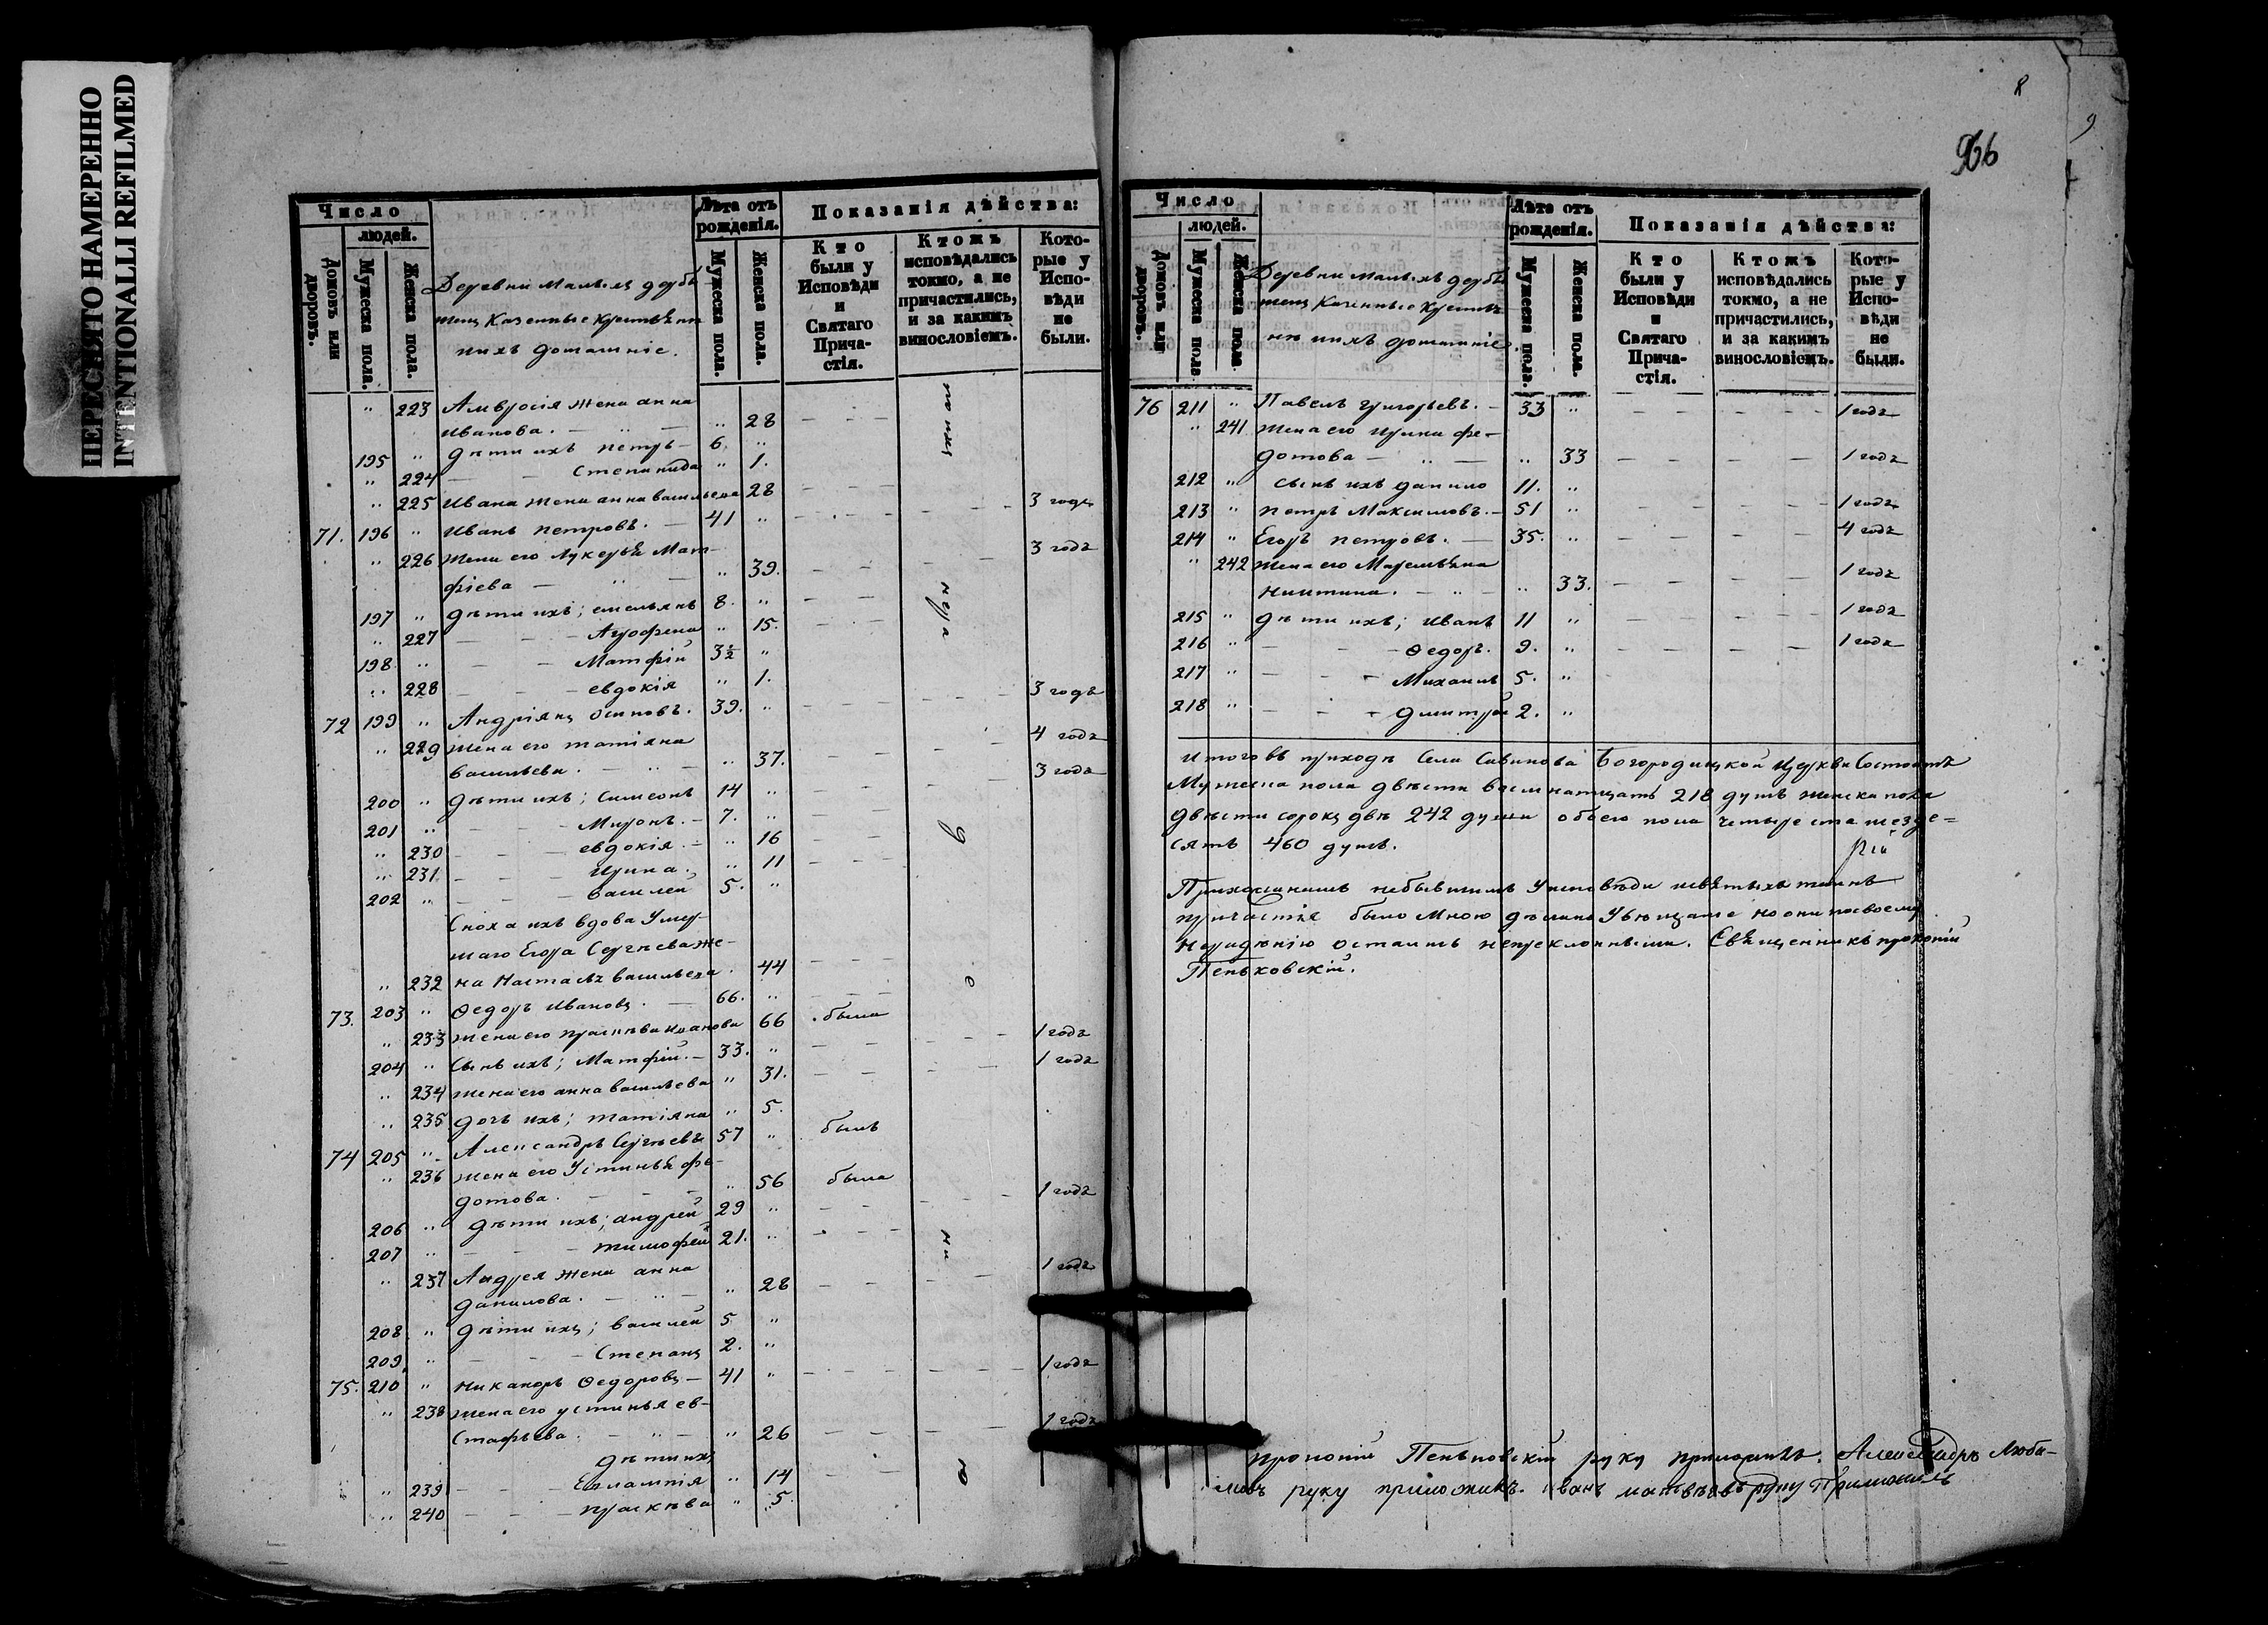 ПЕРЕСНЯТО НАМЕРЕННО
INTENTIONALLI REFILMED
Число
людей.
Домовъ или дворовъ.
Мужеска пола.
Женска пола.
Деревни Малыхъ дербе
тенц казенные крестьян
нихъ домашніе.
Лѣта отъ рожденія.
Мужеска пола.
Женска пола.
Показанія дѣйства:
Кто были у Исповѣди и Святаго Причастія.
Ктожъ исповѣдались токмо, а не причастились, и за какимъ винословіемъ.
Которые у Исповѣди не были.
" 223 Амвросія жена анна
иванова. — " — " 28 — —
195 " дѣти ихъ петръ — 6. "
" 224 — — Степанида " 1.
" 225 ивана жена анна васильева 28 — — — — 3 годъ
71. 196 " иванъ петровъ. — 41 " — — — — 3 годъ
" 226 жена его Лукерья Мат-
фіева — " — " 39. — —
197 " дѣти ихъ; емельянъ 8. "
" 227 — — Агрофена " 15. — —
198 " — — Матфій 3½ "
" 228 — — евдокія " 1.
72 199 " Андріянъ осиповъ. 39. " — — — — 3 годъ
" 229 жена его татіяна
васильева. — " — " 37. — — — — 4 годъ
200 " дѣти ихъ; симеонъ 14 " — — — — 3 годъ
201 " — — Миронъ. — 7. " — —
" 230 — — евдокія. — " 16 — —
" 231 — — ирина. " 11 — —
202 " — — василей 5. "
Сноха ихъ вдова Умер-
шаго Егора Сергѣева же-
" 232 на Настасья васильева. 44 — —
73. 203 " Ѳедоръ ивановъ. — 66. " — —
" 233 жена его прасковья иванова 66 была
204 " Сынъ ихъ; Матфій. — 33. " — — — — 1 годъ
" 234 жена его анна васильева " 31. — — — — 1 годъ
" 235 дочь ихъ; татіяна " 5.
74 205 " Александръ Сергѣевъ 57 " былъ
" 236 жена его Устинья фе-
дотова. — — — " 56 была
206 " дѣти ихъ; андрей 29 " — — — — 1 годъ
207 " — — тимофей 21. " — —
" 237 Андрея жена анна
данилова. — " — " 28 — — — — 1 годъ
208. " дѣти ихъ; василей 5 "
209. " — — Степанъ 2. "
75. 210 " никаноръ Ѳедоровъ — 41 " — — — — 1 годъ
" 238 жена его устинья ев-
стафьева. — " — " 26 — — — — 1 годъ
дѣти ихъ
" 239 — — Евлампія " 14 — —
" 240 — — прасковья " 5.
8
9
Число
людей.
Домовъ или дворовъ.
Мужеска пола
Женска пола
Деревни малыхъ дербе
тенц казенные крестья
не нихъ домашніе.
Лѣта отъ рожденія.
Мужеска пола.
Женска пола.
Показанія дѣйства:
Кто были у Исповѣди и Святаго Причастія.
Ктожъ исповѣдались токмо, а не причастились, и за какимъ винословіемъ.
Которые у Исповѣди не были.
76 211 " Павелъ григорьевъ. — 33 " — — — — 1 годъ
" 241 жена его ирина фе-
дотова — " — " 33 — — — — 1 годъ
212 " сынъ ихъ данило 11. " — — — — 1 годъ
213 " петръ Максимовъ. — 51 " — — — — 4 годъ
214 " Егоръ петровъ. — 35. " — — — — 1 годъ
" 242 жена его Маремьяна
никитина. — " — " 33. — — — — 1 годъ
215 " дѣти ихъ; иванъ 11 " — — — — 1 годъ
216 " — — Ѳедоръ. 9. " — — — — 1 годъ
217 " — — Михаилъ 5. "
218 " — — дмитрій 2. "
итого въ приходѣ Села Савинова Богородицкой церкви Состоитъ
Мужеска пола двѣсти восемнатцать 218 душъ женска пола
двѣсти сорокъ двѣ 242 души обоего пола четыреста шезде=
сятъ 460 душъ.
Прихожанамъ небывшимъ Уисповѣди исвятыхъ таинъ
причастія было мною дѣлано Увѣщаніе но они посвоему
нерадѣнію остались непреклонными. Священникъ прокопій
Пеньковскій.
прокопій Пеньковскій руку приложилъ. Александръ Люби-
мовъ руку приложилъ. Иванъ матвѣевъ руку Приложилъ